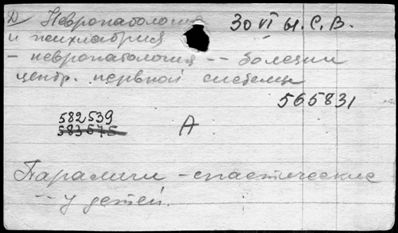 Д Невропатология 30 VI Ы. С. В.
и психиатрия
– невропатология -- болезни
центр. нервной системы
565831
582539
583575 А
Параличи – спастические
-- у детей.